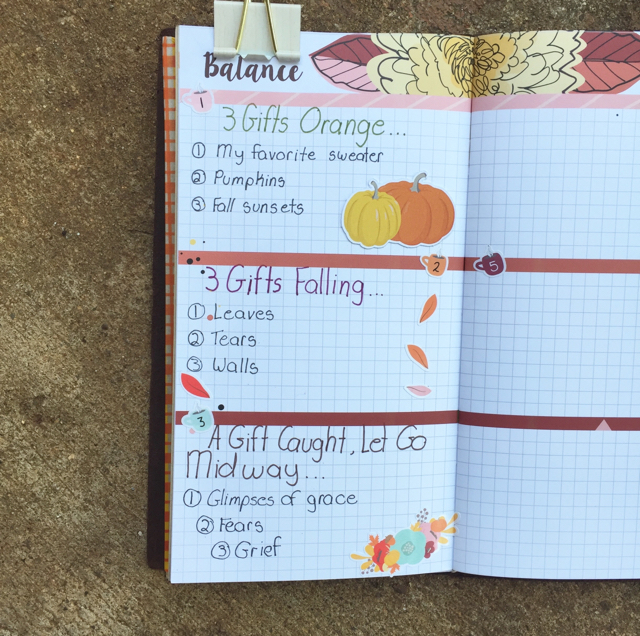 Balance
1
3 Gifts Orange...
① My favorite sweater
② Pumpkins
③ Fall sunsets
2
5
3 Gifts Falling...
① Leaves
② Tears
③ Walls
3
A Gift Caught, Let Go
Midway...
① Glimpses of grace
② Fears
③ Grief